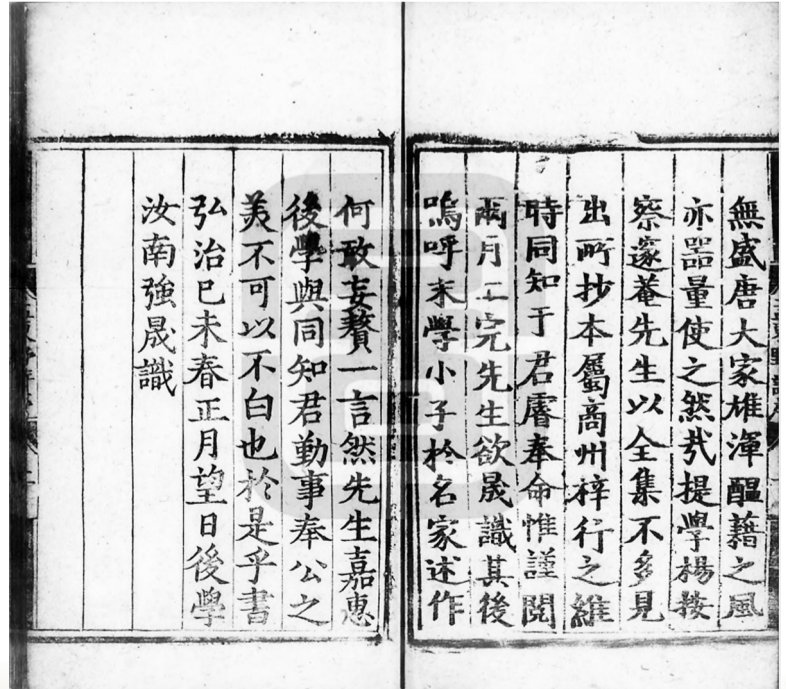 無盛唐大家雄渾醞藉之風
亦器量使之然哉提學楊按
察邃菴先生以全集不多見
出所抄本屬商州梓行之維
時同知于君睿奉命惟謹閱
兩月工完先生欲晟識其後
嗚呼末學小子於名家述作
何敢妄贅一言然先生嘉惠
後學與同知君勤事奉公之
美不可以不白也於是乎書
弘治己未春正月望日後學
汝南強晟識